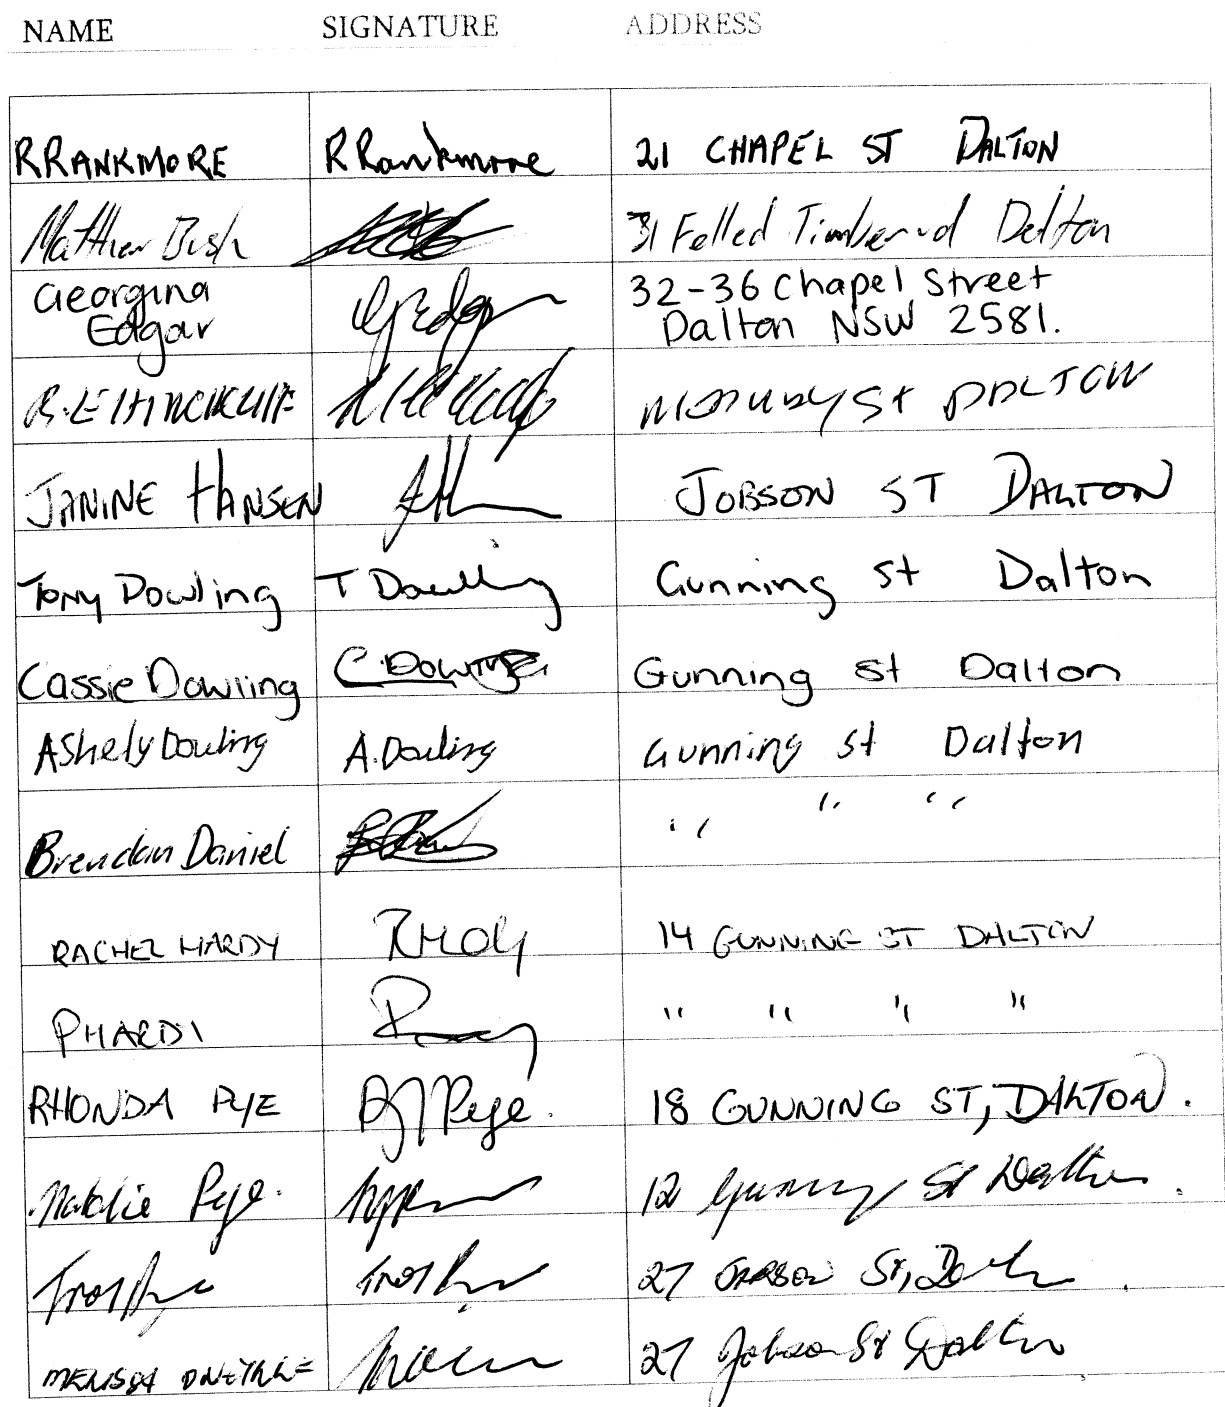 NAME SIGNATURE ADDRESS
RRANKMORE R Rankmore 21 CHAPEL ST DALTON
Matthew Bush 31 Felled Timber rd Dalton
Georgina 32-36 Chapel Street
Edgar GEdgar Dalton NSW 2581.
R.E HINCHCLIFFE ST DALTON
JANINE HANSEN JOBSON ST DALTON
Tony Dowling T Dowling Gunning St Dalton
Cassie Dowling C. Dowling Gunning St Dalton
Ashely Dowling A. Dowling Gunning St Dalton
Brendan Daniel " " "
RACHEL HARDY 14 GUNNING ST DALTON
PHARDI " " " "
RHONDA PYE RJPye. 18 GUNNING ST, DALTON.
Natalie Pye. 12 Gunning St Dalton.
27 JOBSON St, Dalton.
27 Jobson St Dalton